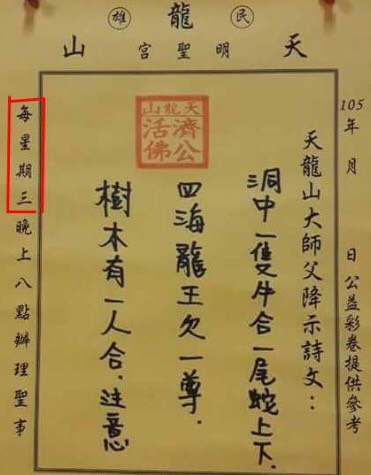 民龍雄
天明聖宮山
105年 月 日公益彩卷提供參考
天龍山大師父降示詩文：
洞中一隻牛合一尾蛇上下.
天龍山
濟公
活佛
四海龍王欠一尊.
樹木有一人合.注意
每星期三晚上八點辦理聖事